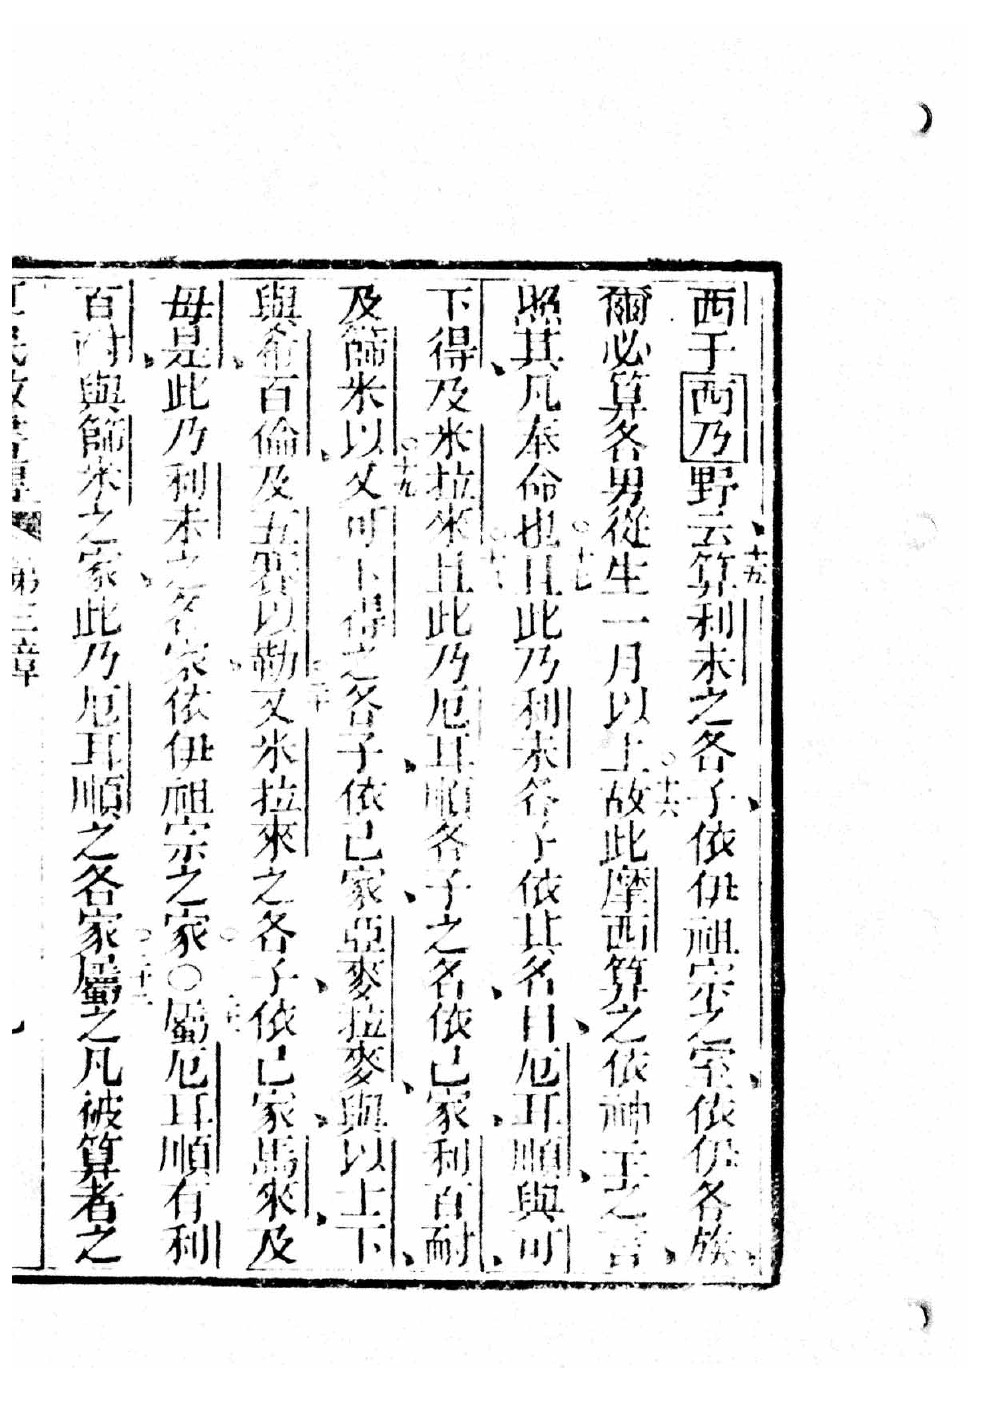 西于西乃野云算利未之各子依伊祖宗之室依伊各族
爾必算各男從生一月以上故此摩西算之依神主之言
照其凡奉命也且此乃利未各子依其名曰厄耳順與可
下得及米拉來且此乃厄耳順各子之名依己家利百耐
及篩米以又可下得之各子依己家亞麥拉麥與以士下
與希百倫及五賽以勒又米拉來之各子依己家馬來及
毋是此乃利未之各家依伊祖宗之家○屬厄耳順有利
百耐與篩米之家此乃厄耳順之各家屬之凡被算者之
第三章